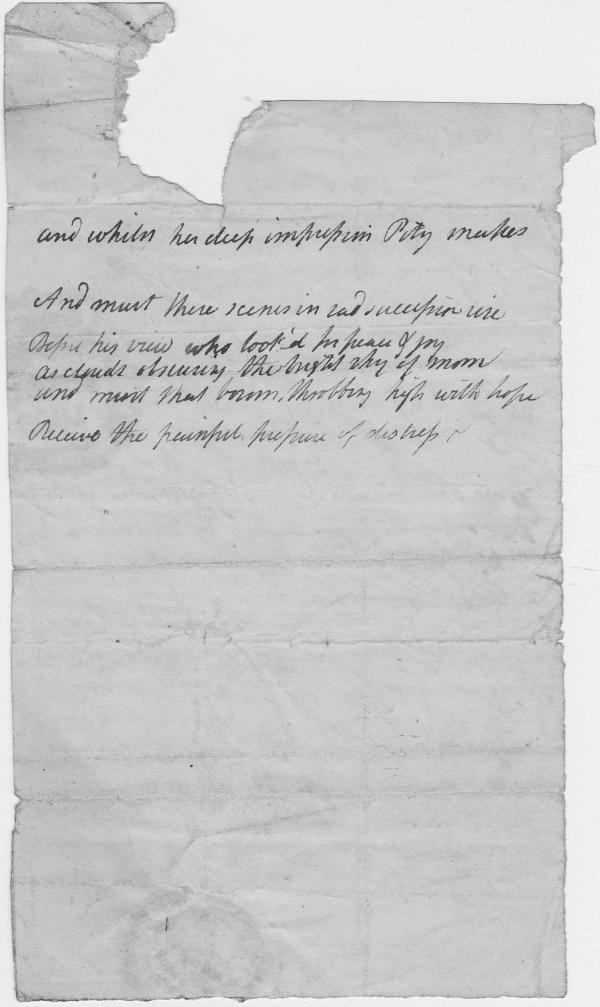 and whilst her deep impression Pity makes
And must these scenes in sad succession rise
Before his view who look'd for peace & joy
as clouds obscuring the bright sky of morn
and must that bosom, throbbing high with hope
Receive the painful pressure of distress